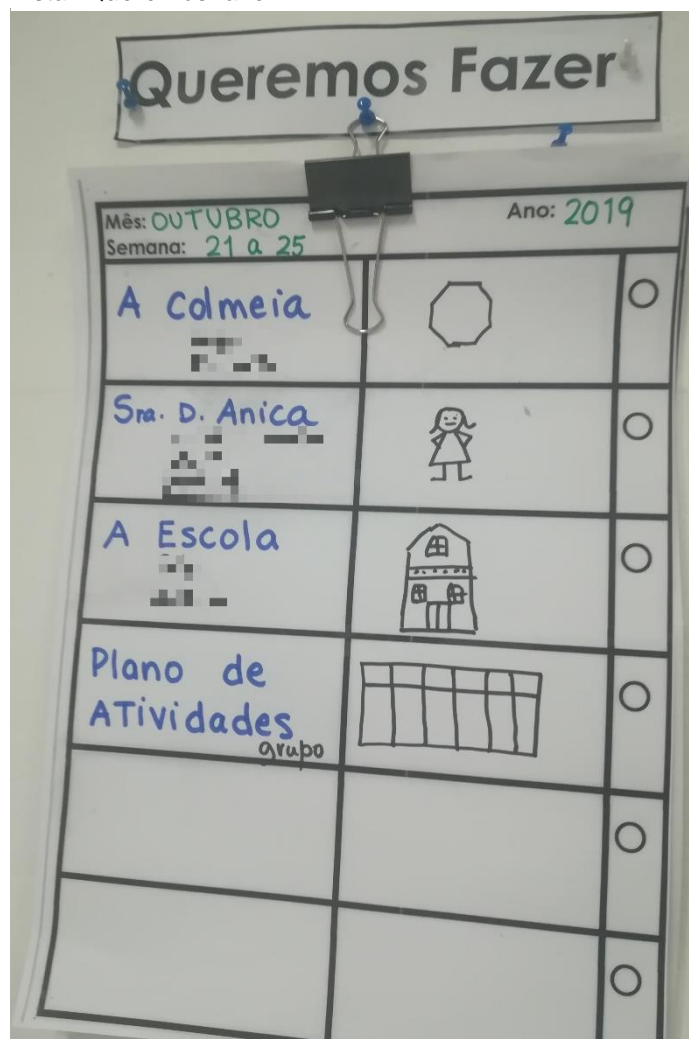 Queremos Fazer
Mês: OUTUBRO
Ano: 2019
Semana: 21 a 25
A Colmeia
Sra. D. Anica
A Escola
Plano de
ATividades
grupo